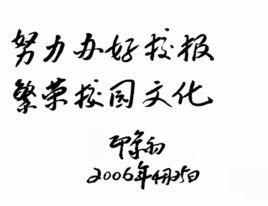 努力办好校报
繁荣校园文化
2006年4月25日